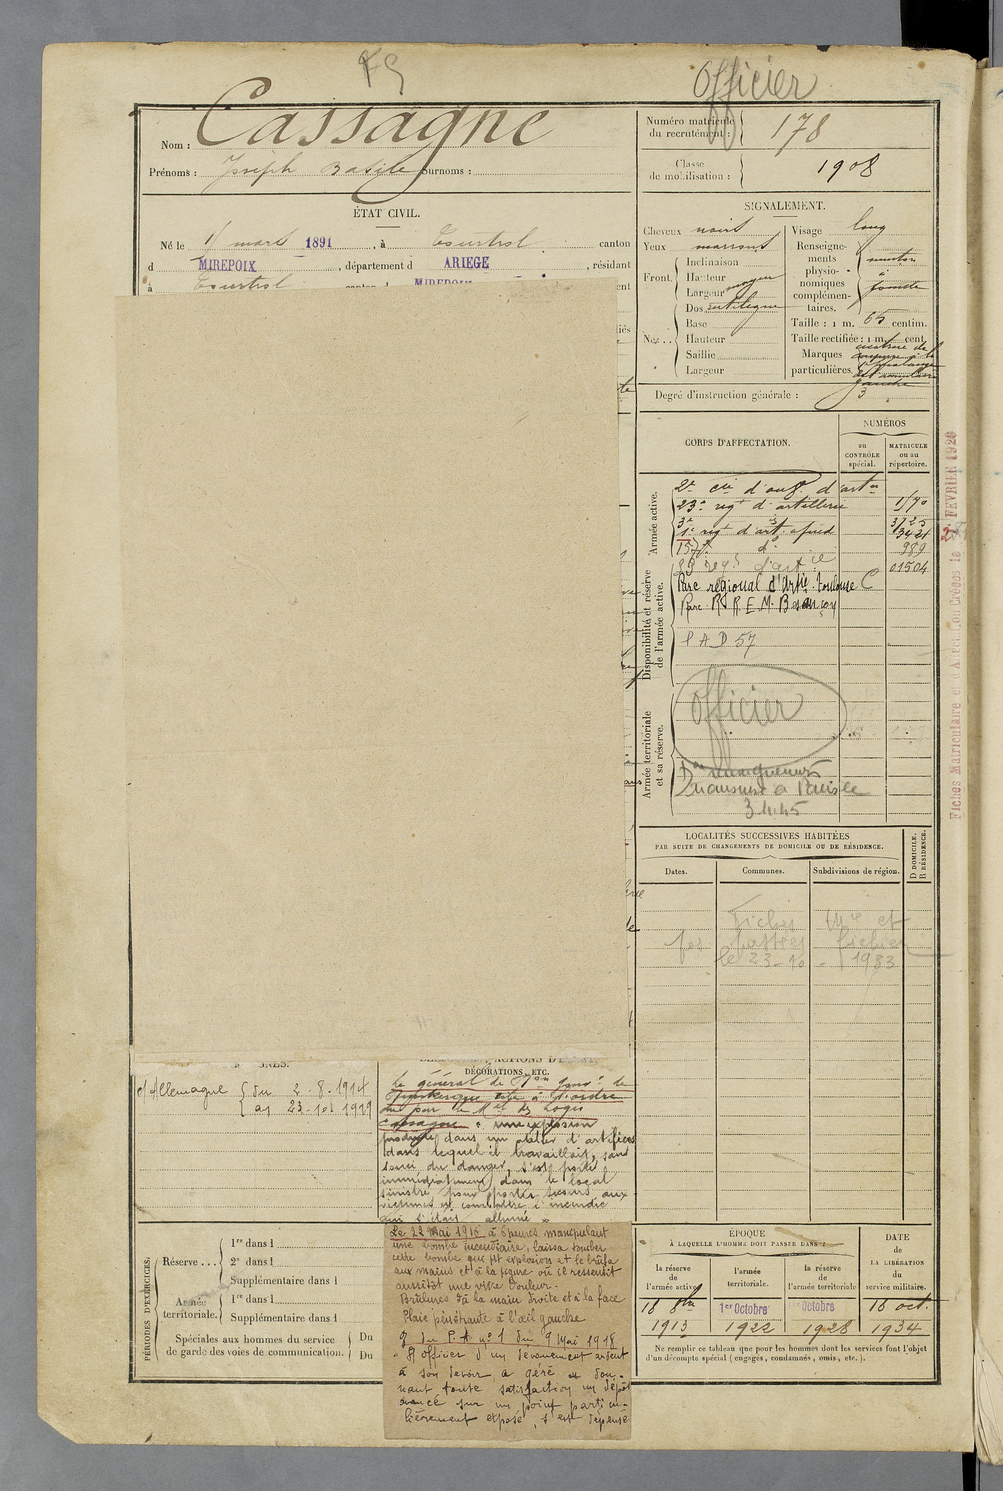 FS
Officier
Nom : Cassagne
Prénoms : Joseph Basile Surnoms :
ÉTAT CIVIL.
Né le 1 mars 1891, à Tourtrol canton
d MIREPOIX, département d ARIEGE, résidant
à Tourtrol canton d MIREPOIX
Numéro matricule
du recrutement : 178
Classe
de mobilisation : 1908
SIGNALEMENT.
Cheveux noirs
Yeux marrons
Front.
Inclinaison
Hauteur moyen
Largeur
Nez..
Dos rectiligne
Base
Hauteur
Saillie
Largeur
Visage long
Renseigne-
ments
physio-
nomiques
complémen-
taires.
menton
à
fossette
Taille : 1 m. 65 centim.
Taille rectifiée : 1 m. cent.
Marques
particulières.
cicatrice de
gauche
Degré d'instruction générale : 3
CORPS D'AFFECTATION.
NUMÉROS
au
CONTRÔLE
spécial.
MATRICULE
ou au
répertoire.
Armée active.
2e cie d'ouv. d'artie
23e regt d'artillerie 1170
3e 3725
1er regt d'art. à pied 3421
157e do 989
regt d'artie 01504
Disponibilité et réserve
de l'armée active.
Parc régional d'Artie. Toulouse C
Parc R.R.E.M. Besançon
P A D 57
Armée territoriale
et sa réserve.
Officier
Dr renseignements
3.4.45
Fiches Matriculaire et d'Affectation Créées le 2 FEVRIER 1926
LOCALITÉS SUCCESSIVES HABITÉES
PAR SUITE DE CHANGEMENTS DE DOMICILE OU DE RÉSIDENCE.
Dates.
Communes.
Subdivisions de région.
D DOMICILE.
R RÉSIDENCE.
Fiches mle et
passées fichier
le 23-10-1933
DÉCORATIONS, ETC.
c/ Allemagne { du 2.8.1914
{ au 23.10.1919
Le général de Don Gouvr de
Dunkerque cite à l'ordre
du jour le Mal des Logis
Cassagne « une explosion
produite dans un atelier d'artifices
dans lequel il travaillait, sans
souci du danger, s'est porté
immédiatement dans le local
sinistré pour porter secours aux
victimes et combattre l'incendie
qui s'était allumé »
Le 22 Mai 1915 à 6 heures manipulant
une bombe incendiaire, laissa tomber
cette bombe qui fit explosion et le brûla
aux mains et à la figure où il ressentit
aussitôt une vive douleur.
Brûlures à la main droite et à la face
Plaie pénétrante à l'œil gauche
O. du P.A. no 1 du 9 Mai 1918
« Officier d'un dévouement ardent
à son devoir a géré en don-
nant toute satisfaction un dépôt
avancé sur un point particu-
lièrement exposé, s'est dépensé
PÉRIODES D'EXERCICES.
Réserve ...
1re dans l
2e dans l
Supplémentaire dans l
Armée
territoriale.
1re dans l
Supplémentaire dans l
Spéciales aux hommes du service
de garde des voies de communication.
Du
Du
ÉPOQUE
À LAQUELLE L'HOMME DOIT PASSER DANS :
la réserve
de
l'armée active
l'armée
territoriale.
la réserve
de
l'armée territoriale
DATE
de
LA LIBÉRATION
du
service militaire.
18 8bre 1er Octobre Octobre 18 oct.
1913 1922 1928 1934
Ne remplir ce tableau que pour les hommes dont les services font l'objet
d'un décompte spécial (engagés, condamnés, omis, etc.).